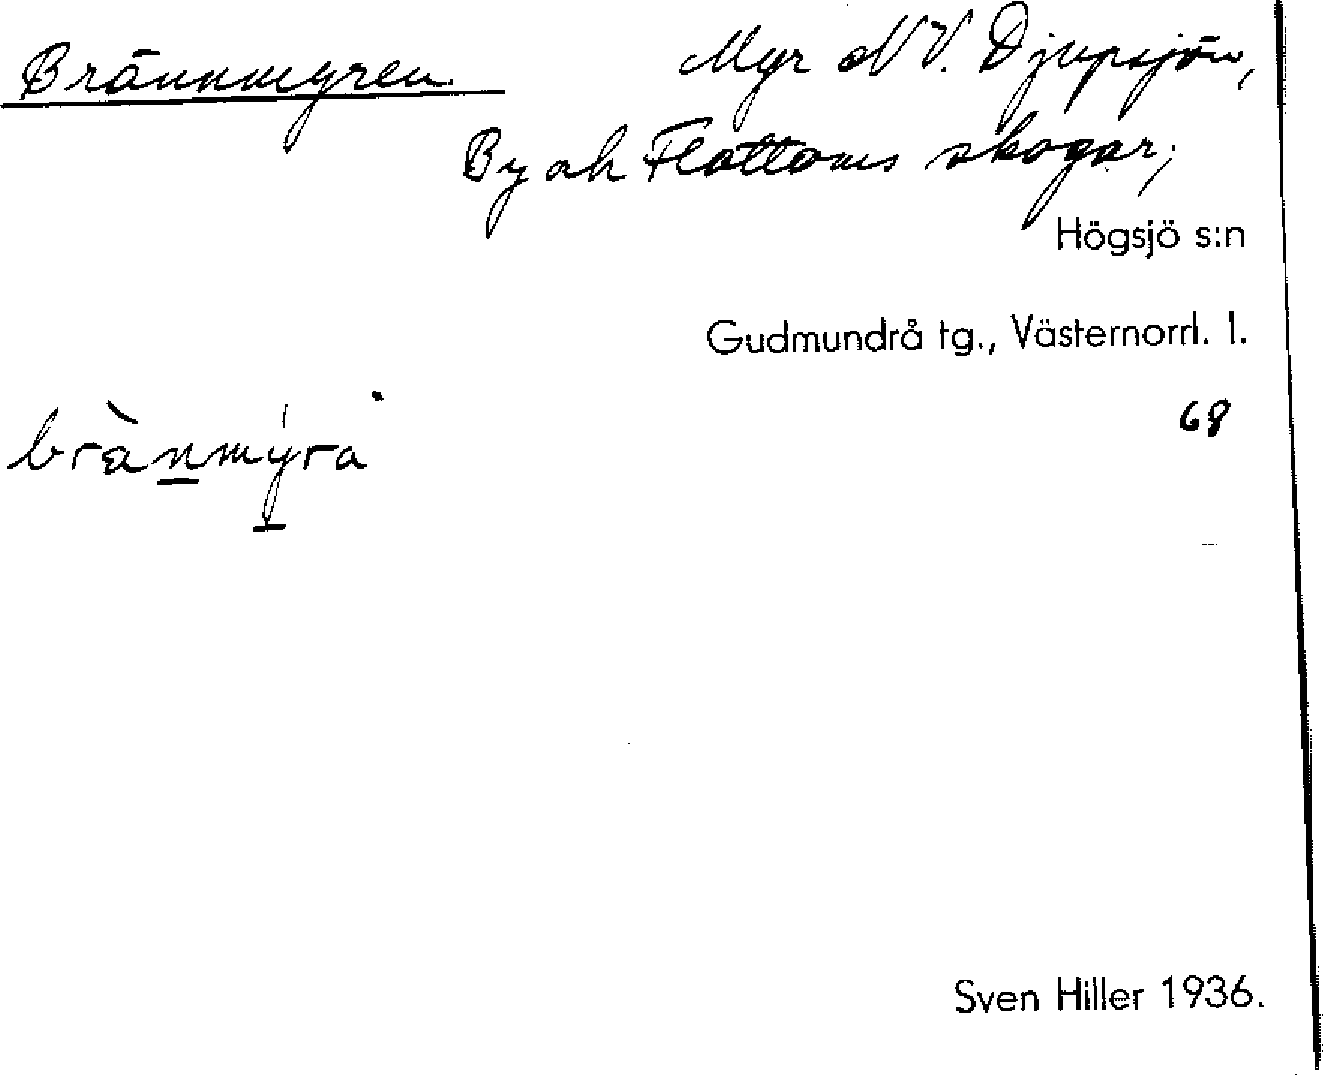 Brännmyren
Myr NV. Djupsjön,
By och Flottoms skogar;
Högsjö s:n
Gudmundrå tg., Västernorrl. l.
68
Sven Hiller 1936.